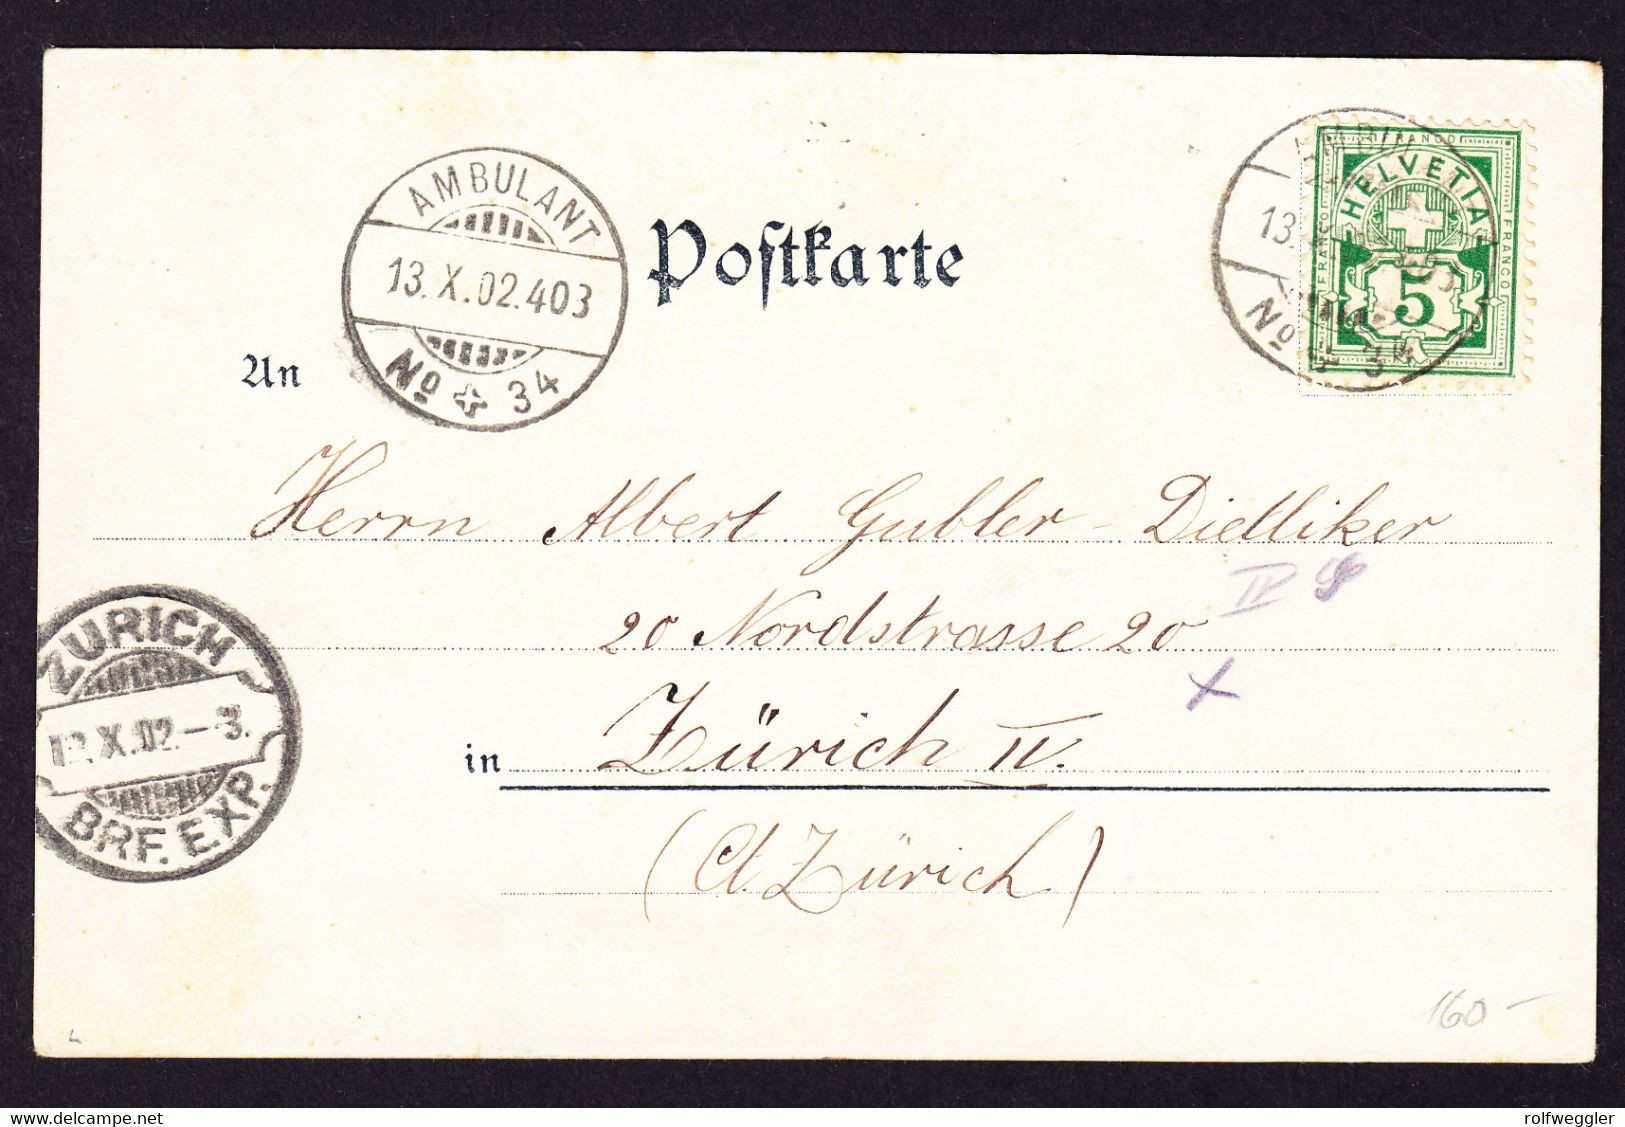 AMBULANT
13.X.02.403
No 34
Postkarte
HELVETIA
FRANCO
FRANCO
5
13.
No 34
An
Herrn Albert Gubler-Dietliker
IV
20 Nordstrasse 20
ZÜRICH
X.02.-3.
BRF. EXP.
in Zürich IV.
(Ct. Zürich)
160-
delcampe.net
rolfweggler